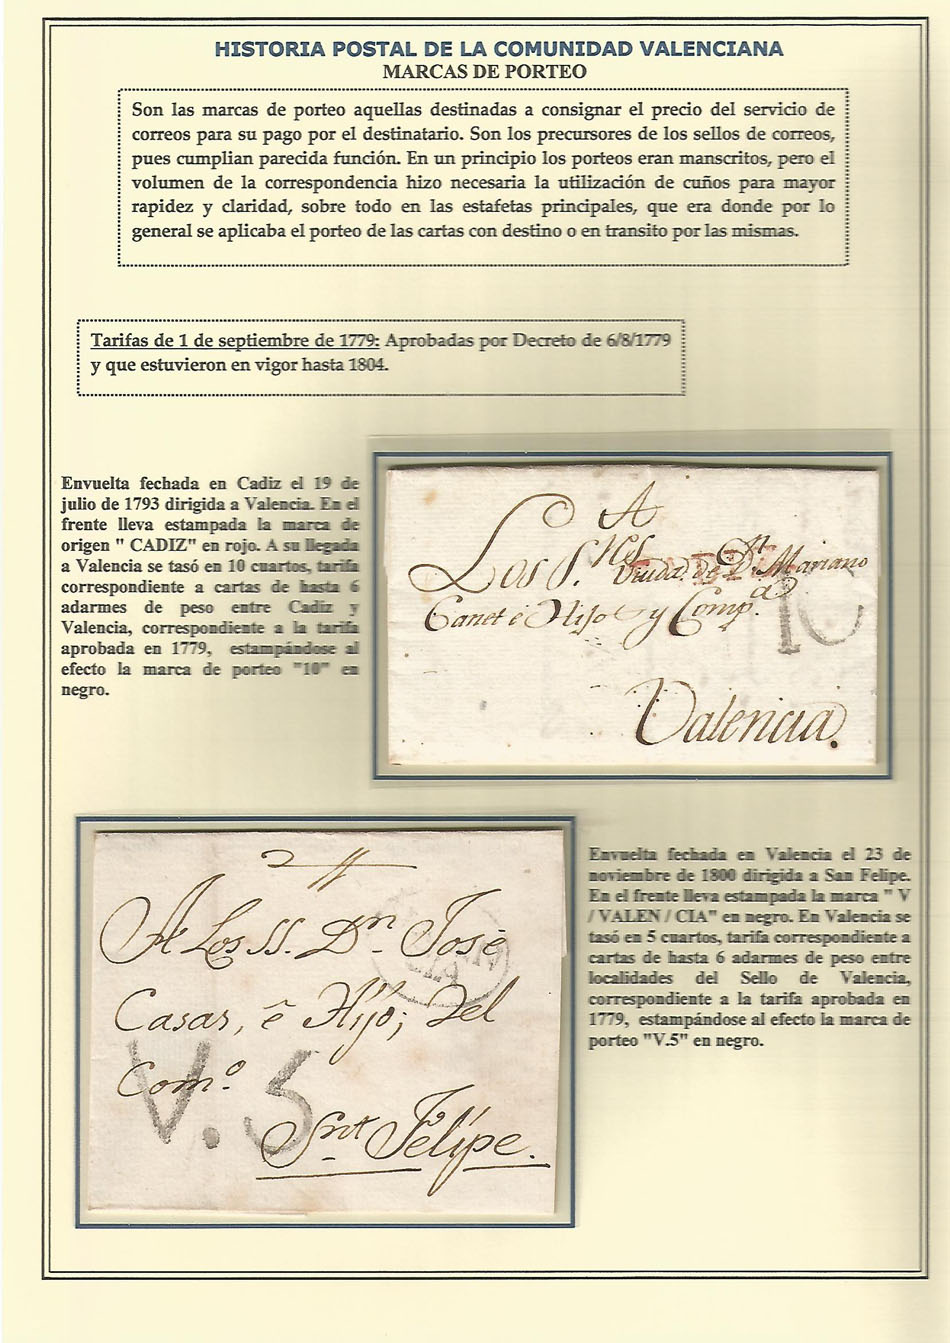 HISTORIA POSTAL DE LA COMUNIDAD VALENCIANA
MARCAS DE PORTEO
Son las marcas de porteo aquellas destinadas a consignar el precio del servicio de
correos para su pago por el destinatario. Son los precursores de los sellos de correos,
pues cumplian parecida función. En un principio los porteos eran manscritos, pero el
volumen de la correspondencia hizo necesaria la utilización de cuños para mayor
rapidez y claridad, sobre todo en las estafetas principales, que era donde por lo
general se aplicaba el porteo de las cartas con destino o en transito por las mismas.
Tarifas de 1 de septiembre de 1779: Aprobadas por Decreto de 6/8/1779
y que estuvieron en vigor hasta 1804.
Envuelta fechada en Cadiz el 19 de
julio de 1793 dirigida a Valencia. En el
frente lleva estampada la marca de
origen " CADIZ" en rojo. A su llegada
a Valencia se tasó en 10 cuartos, tarifa
correspondiente a cartas de hasta 6
adarmes de peso entre Cadiz y
Valencia, correspondiente a la tarifa
aprobada en 1779, estampándose al
efecto la marca de porteo "10" en
negro.
A
Los S.res Viuda de Dn. Mariano
Canet é Hijo y Comp.a
10
Valencia.
Envuelta fechada en Valencia el 23 de
noviembre de 1800 dirigida a San Felipe.
En el frente lleva estampada la marca " V
/ VALEN / CIA" en negro. En Valencia se
tasó en 5 cuartos, tarifa correspondiente a
cartas de hasta 6 adarmes de peso entre
localidades del Sello de Valencia,
correspondiente a la tarifa aprobada en
1779, estampándose al efecto la marca de
porteo "V.5" en negro.
A Los SS. Dn. José
CIA
Casas, é Hijo; del
Com.o
V.5
Snt Felipe.